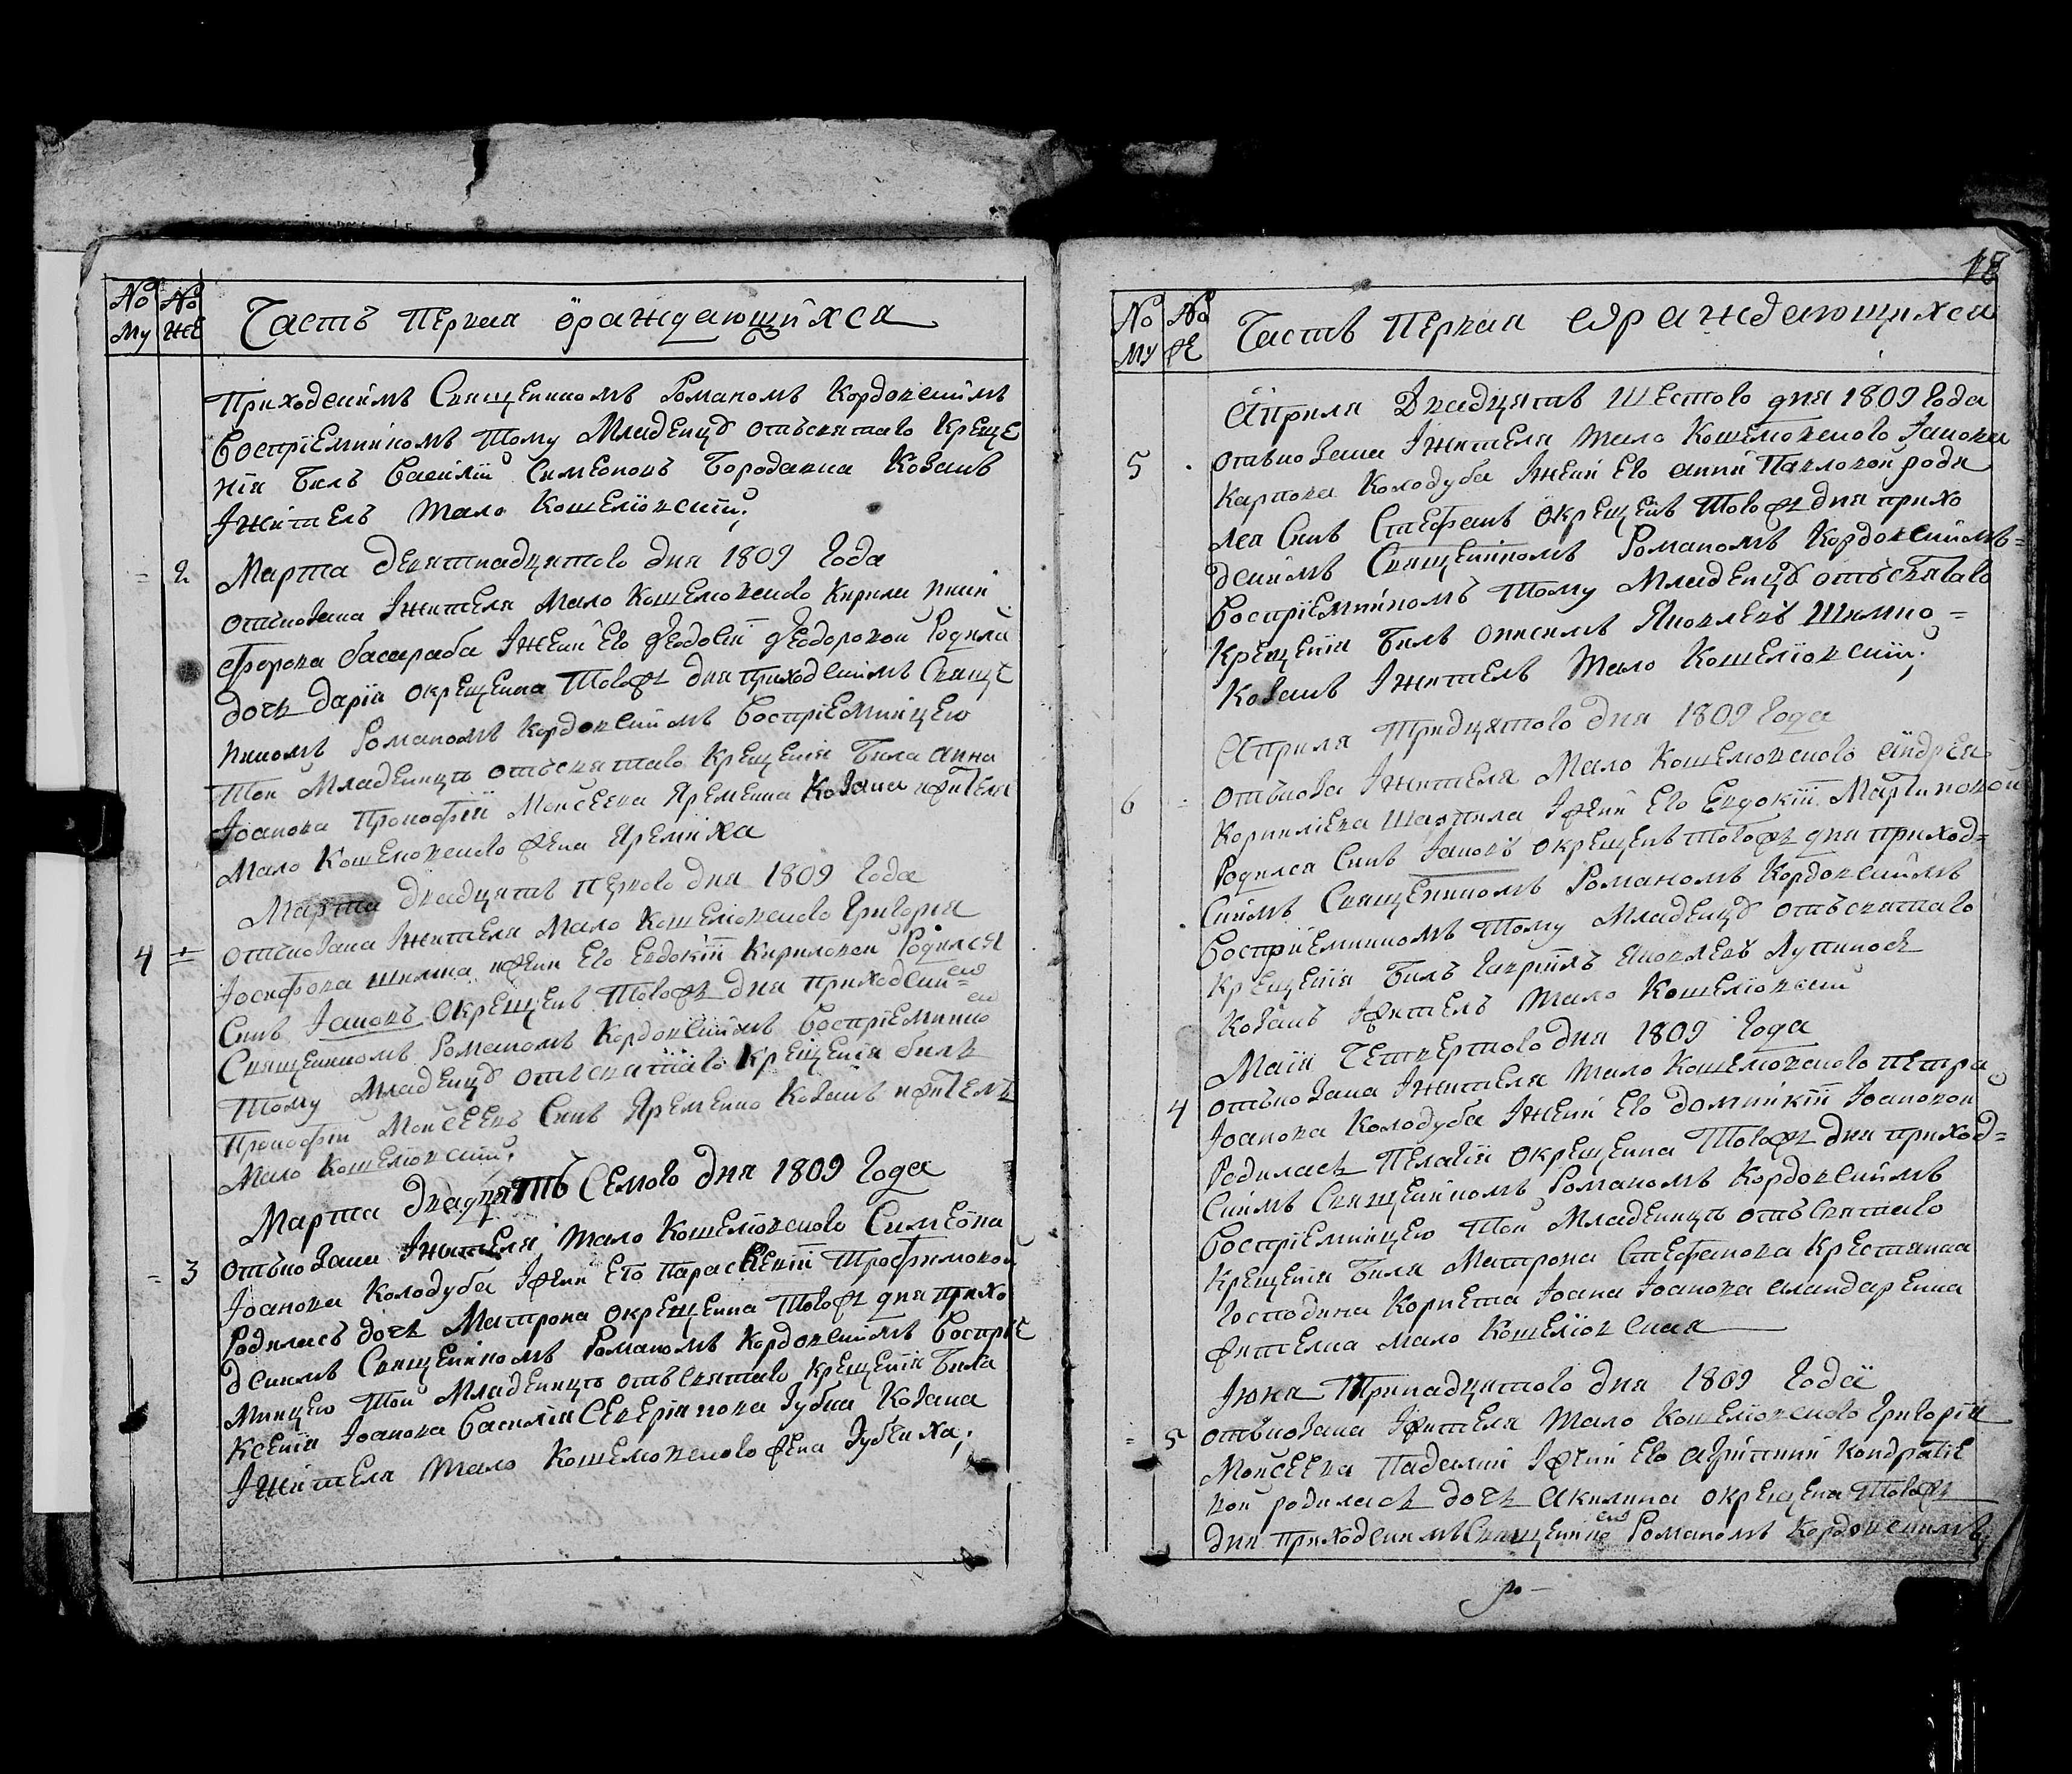 No No
Му же
Часть первая ораждающихся
Приходскимъ Священникомъ Романомъ Кордовскимъ
Воспріемникомъ тому Младенцу отъ святаго Креще
нія билъ Василій Симеоновъ Бородавка Козакъ
Iжитель Мало Кошелювскій;
= 2 Марта девятнадцатого дня 1809 Года
отъ козака Iжителя Мало Кошелювского Кирила Ники
форова Басараба Iжени его Феодосіи Феодоровой Родила
дочь Дарія окрещенна того ж дня приходскимъ Свяще
никомъ Романомъ Кордовскимъ Воспріемницею
Той Младеници отъ святаго Крещенія била Анна
Iоанова Прокофія Моисеева Яременка Козака и жителя
Мало Кошелювского жена Яремиха
Марта двадцять первого дня 1809 Года
4 = отъ козака Iжителя Мало Кошелювского Григорія
Iосифова Шкляка и жени его Евдокіи Кириловой Родился
Синъ Iаковъ окрещенъ того ж дня приходским
Священникомъ Романомъ Кордовскимъ Воспріемнико
тому Младенцу отъ святаго Крещенія билъ
Прокофій Моисеевъ Синъ Яременко Козакъ и жителъ
Мало Кошелювскій;
Марта двадцять Семого дня 1809 Года
= 3 отъ козака Iжителя Мало Кошелювского Симеона
Iоанова Колодуба I жени его Параскевіи Трофимовой
Родилась дочь Матрона окрещенна того ж дня прихо
дскимъ Священникомъ Романомъ Кордовскимъ Воспріе
мницею той Младеници отъ святаго Крещенія била
Ксенія Iоанова Василія Северіанова Зубка Козака
Iжителя Мало Кошелювского жена Зубчиха;
18
No No
Му же
Часть первая ораждающихся
Априля Двадцять Шестого дня 1809 Года
5 отъ козака Iжителя Мало Кошелювского Iакова
Карпова Колодуба Iжени его Анни Павловой роди
лся Синъ Стефанъ окрещенъ того ж дня прихо
дскимъ Священникомъ Романомъ Кордовскимъ =
Воспріемникомъ тому Младенцу отъ святаго
Крещенія билъ Онисимъ Яковлевъ =
Козакъ Iжитель Мало Кошелювскій;
Априля тридцятого дня 1809 Года
6 = отъ козака Iжителя Мало Кошелювского Андрея
Корнилієва Шаопила I жени его Евдокіи Мартиновой
Родился Синъ Iаковъ окрещенъ того ж дня приход=
Скимъ Священникомъ Романомъ Кордовскимъ
Воспріемникомъ тому Младенцу отъ святаго
Крещенія билъ Гавріилъ Яковлевъ Лупинось
Козакъ Iжителъ Мало Кошелювскій
Маія Четвертого дня 1809 Года
4 отъ козака Iжителя Мало Кошелювского Петра
Iоанова Колодуба Iжени его Домникіи Iоановой
Родилась Пелагія окрещенна того ж дня приход=
Скимъ Священникомъ Романомъ Кордовскимъ
Воспріемницею той Младеници отъ святаго
Крещенія била Матрона Стефанова Крестянка
Господина Корнета Iоана Iоанова
жителка Мало Кошелювская
Iюня Тринадцятого дня 1809 Года
= 5 отъ козака I жителя Мало Кошелювского Григорія
Моисеева Падалки I жени его Агрипини Кондратіе
вой родилась дочь Акилина окрещена того ж
дня приходскимъ Священнико Романомъ Кордовскимъ